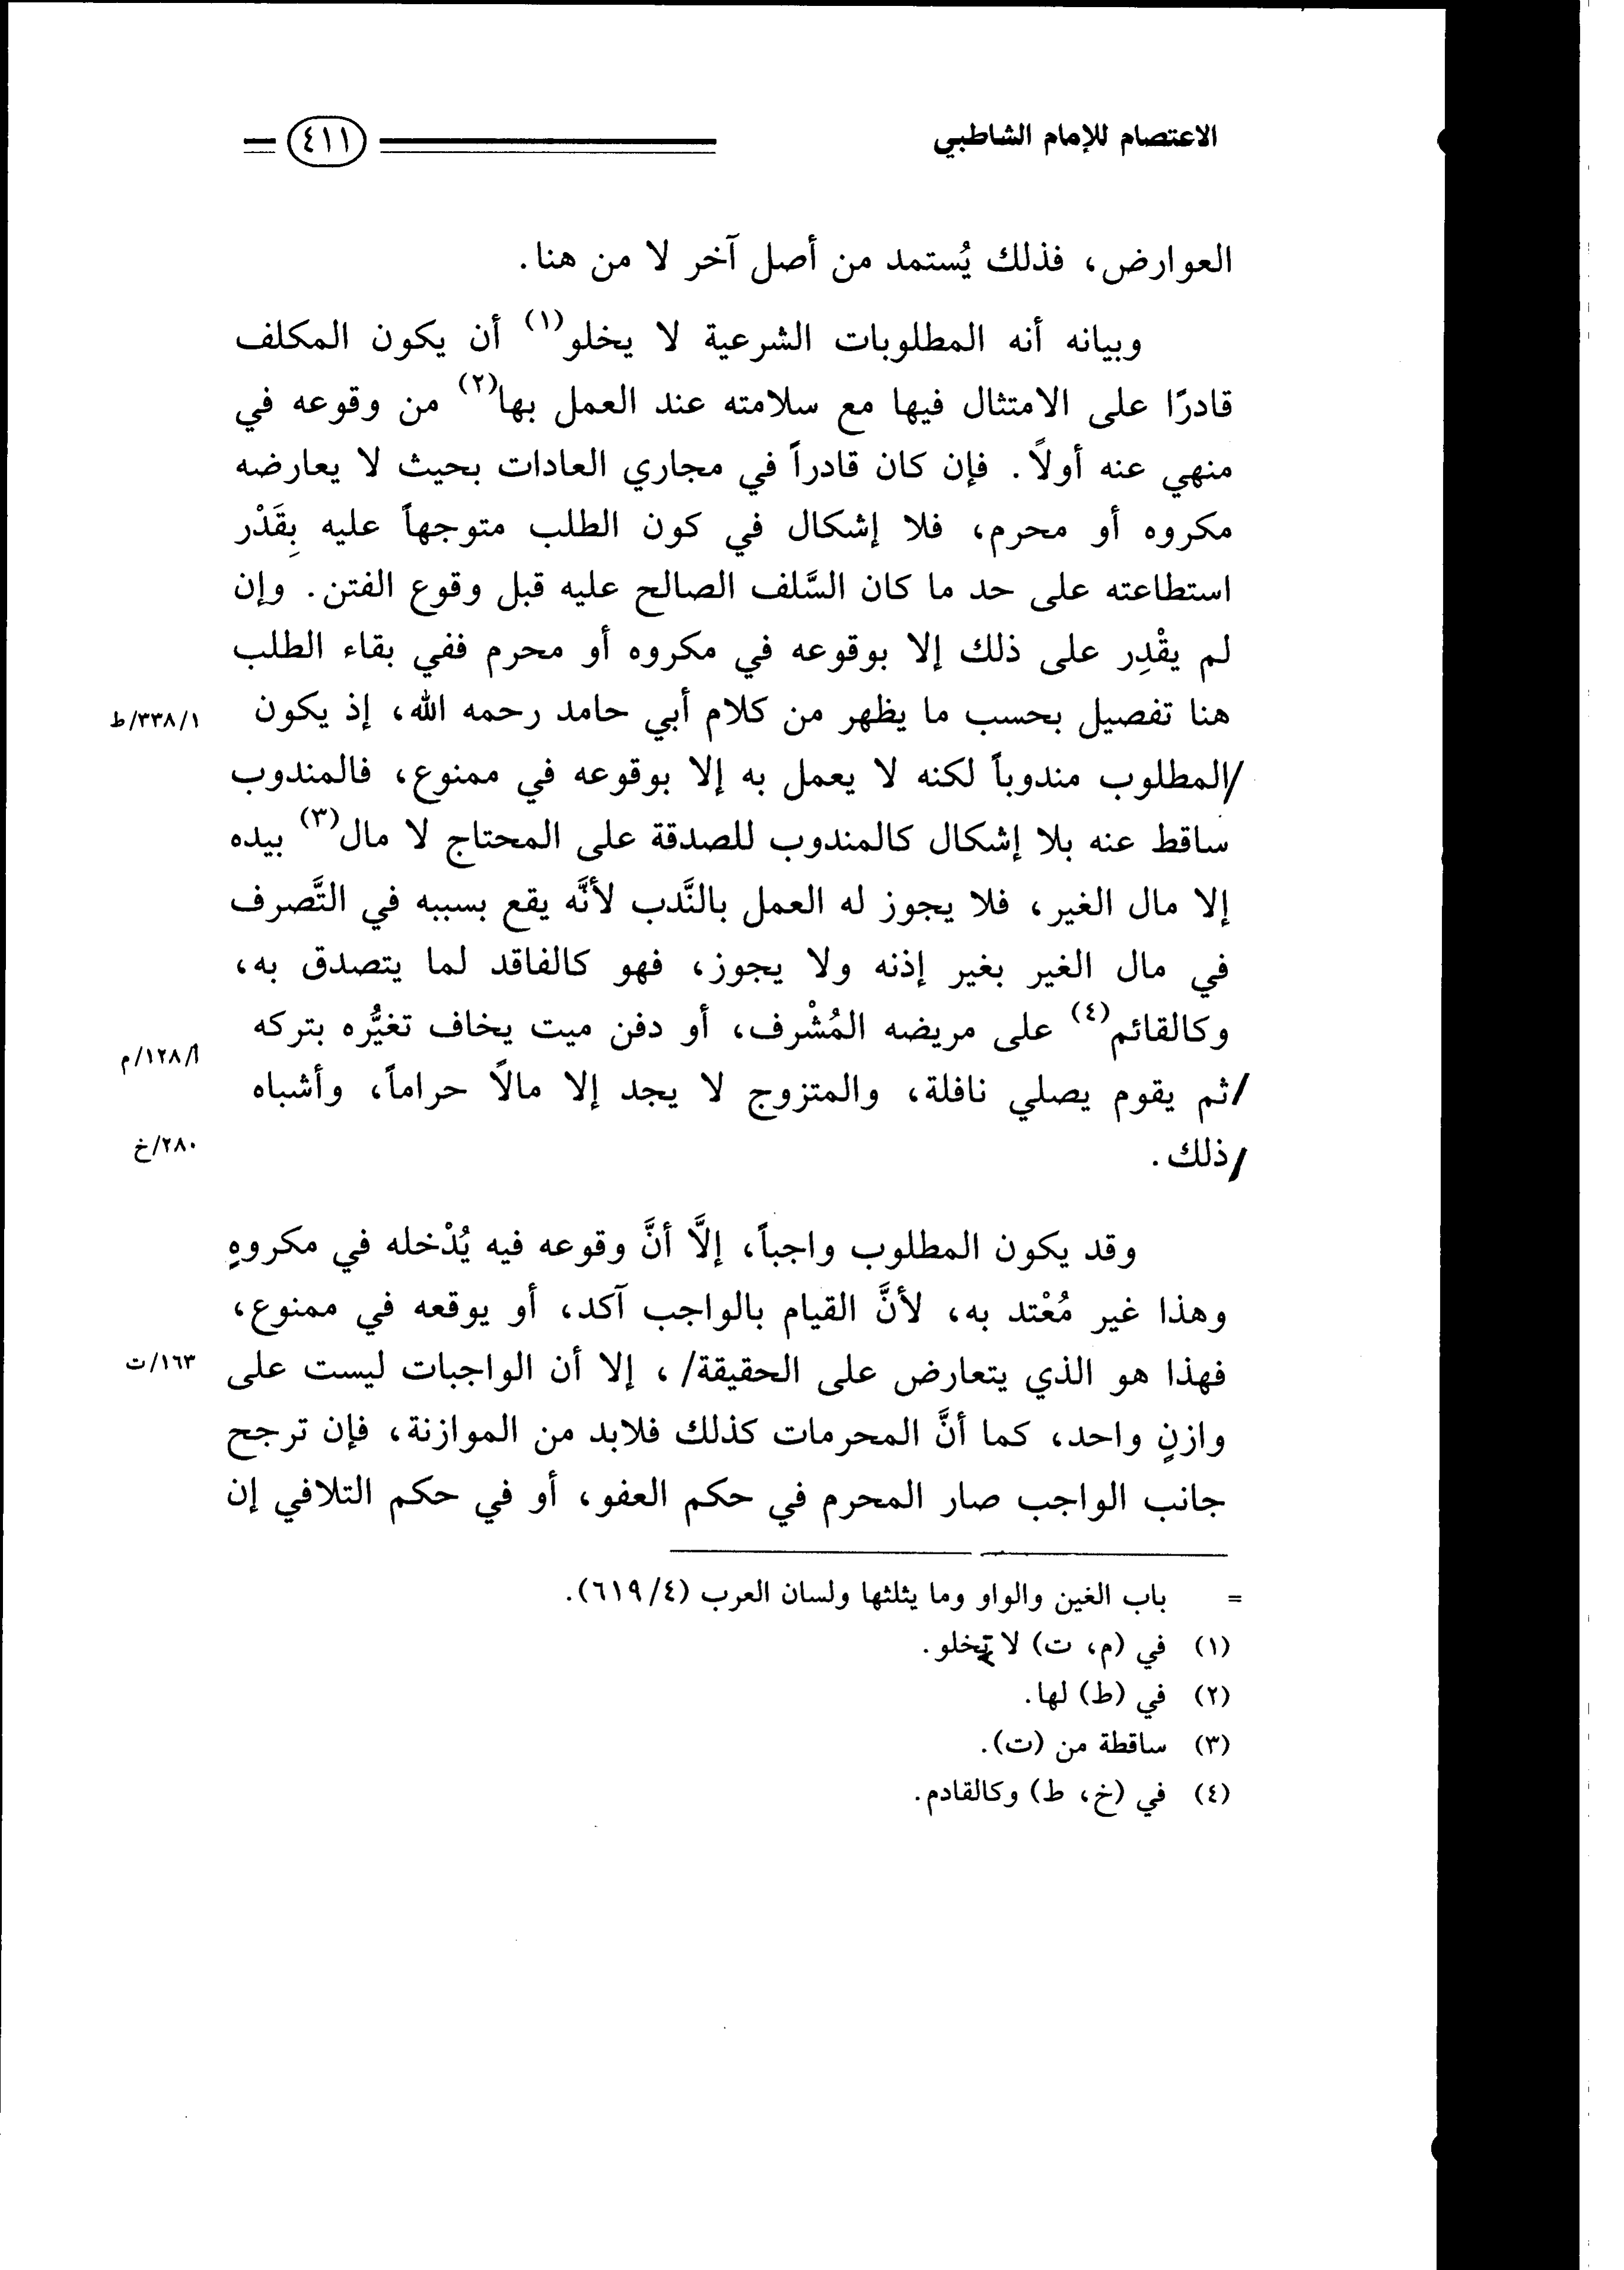 الاعتصام للإمام الشاطبي ٤١١
العوارض، فذلك يُستمد من أصل آخر لا من هنا.
وبيانه أنه المطلوبات الشرعية لا يخلو(١) أن يكون المكلف
قادرًا على الامتثال فيها مع سلامته عند العمل بها(٢) من وقوعه في
منهي عنه أولاً. فإن كان قادراً في مجاري العادات بحيث لا يعارضه
مكروه أو محرم، فلا إشكال في كون الطلب متوجهاً عليه بِقَدْر
استطاعته على حد ما كان السَّلف الصالح عليه قبل وقوع الفتن. وإن
لم يقْدِر على ذلك إلا بوقوعه في مكروه أو محرم ففي بقاء الطلب
هنا تفصيل بحسب ما يظهر من كلام أبي حامد رحمه الله، إذ يكون ٣٣٨/١/ط
/المطلوب مندوباً لكنه لا يعمل به إلا بوقوعه في ممنوع، فالمندوب
ساقط عنه بلا إشكال كالمندوب للصدقة على المحتاج لا مال(٣) بيده
إلا مال الغير، فلا يجوز له العمل بالنَّدب لأنَّه يقع بسببه في التَّصرف
في مال الغير بغير إذنه ولا يجوز، فهو كالفاقد لما يتصدق به،
وكالقائم(٤) على مريضه المُشْرف، أو دفن ميت يخاف تغيُّره بتركه ١٢٨/أ/م
/ثم يقوم يصلي نافلة، والمتزوج لا يجد إلا مالًا حراماً، وأشباه
/ذلك. ٢٨٠/خ
وقد يكون المطلوب واجباً، إلَّا أنَّ وقوعه فيه يُدْخله في مكروهٍ
وهذا غير مُعْتد به، لأنَّ القيام بالواجب آكد، أو يوقعه في ممنوع،
فهذا هو الذي يتعارض على الحقيقة/، إلا أن الواجبات ليست على ١٦٣/ت
وازنٍ واحد، كما أنَّ المحرمات كذلك فلابد من الموازنة، فإن ترجح
جانب الواجب صار المحرم في حكم العفو، أو في حكم التلافي إن
= باب الغين والواو وما يثلثها ولسان العرب (٦١٩/٤).
(١) في (م، ت) لا تخلو.
(٢) في (ط) لها.
(٣) ساقطة من (ت).
(٤) في (خ، ط) وكالقادم.